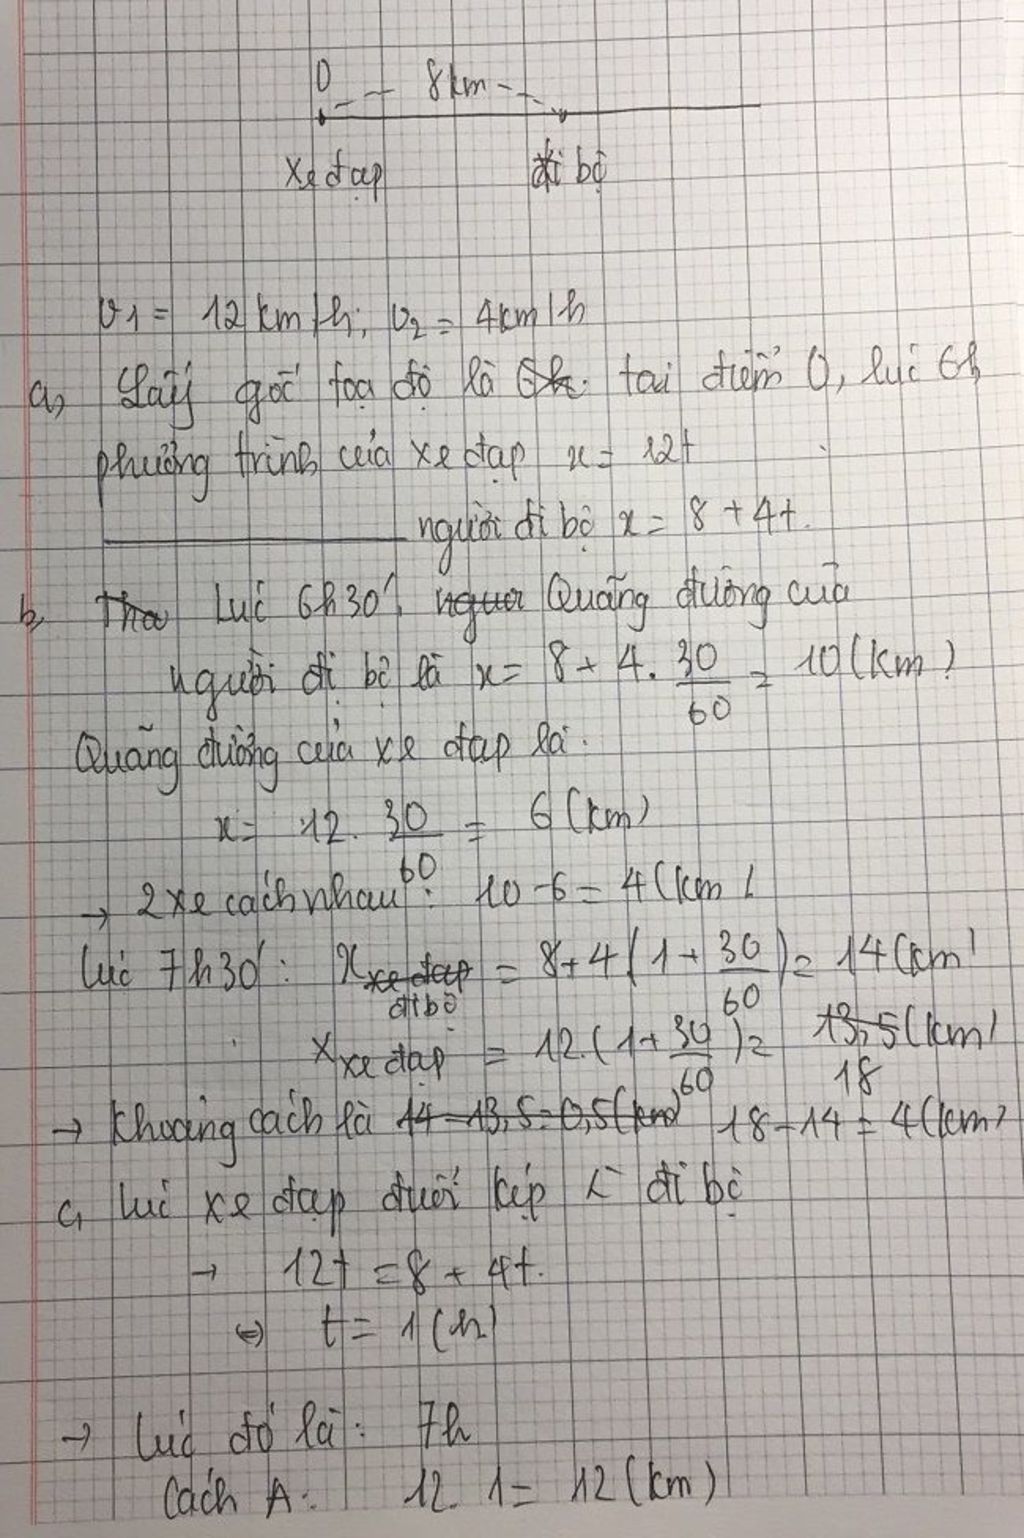 O
8km
xe đạp đi bộ
v1 = 12km/h; v2 = 4km/h
a, Lấy gốc tọa độ là tại điểm O, lúc 6h
phương trình của xe đạp x = 12t
người đi bộ x = 8 + 4t.
b, Lúc 6h30', Quãng đường của
người đi bộ là x = 8 + 4. 30/60 = 10 (km)
Quãng đường của xe đạp là:
x = 12. 30/60 = 6 (km)
→ 2 xe cách nhau: 10 - 6 = 4 (km)
lúc 7h30': x đi bộ = 8 + 4 (1 + 30/60) = 14 (km)
x xe đạp = 12. (1 + 30/60) = 13,5 (km)
18
→ Khoảng cách là 14 - 13,5 = 0,5 (km) 18 - 14 = 4 (km)
c, lúc xe đạp đuổi kịp đi bộ
→ 12t = 8 + 4t.
⇔ t = 1 (h)
→ lúc đó là: 7h
Cách A: 12. 1 = 12 (km)